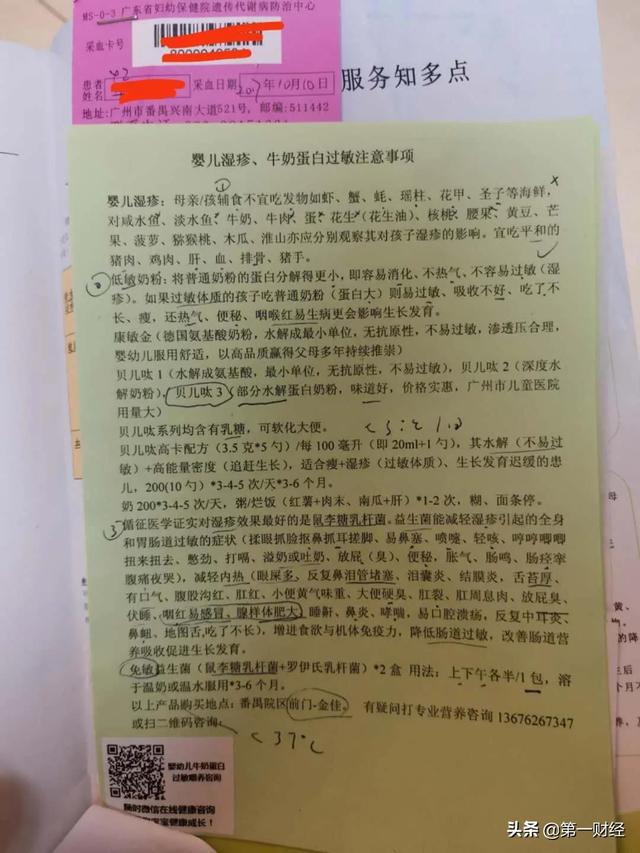 MS-0-3 广东省妇幼保健院遗传代谢病防治中心
采血卡号
患者
姓名
采血日期 2017年10月10日
地址:广州市番禺兴南大道521号, 邮编:511442
服务知多点
婴儿湿疹、牛奶蛋白过敏注意事项
①
婴儿湿疹:母亲/孩辅食不宜吃发物如虾、蟹、蚝、瑶柱、花甲、圣子等海鲜,
对咸水鱼、淡水鱼、牛奶、牛肉、蛋、花生(花生油)、核桃、腰果、黄豆、芒
果、菠萝、猕猴桃、木瓜、淮山亦应分别观察其对孩子湿疹的影响。宜吃平和的
猪肉、鸡肉、肝、血、排骨、猪手。
② 低敏奶粉:将普通奶粉的蛋白分解得更小,即容易消化、不热气、不容易过敏(湿
疹)。如果过敏体质的孩子吃普通奶粉(蛋白大)则易过敏、吸收不好、吃了不
长、瘦,还热气、便秘、咽喉红易生病更会影响生长发育。
康敏金(德国氨基酸奶粉,水解成最小单位,无抗原性,不易过敏,渗透压合理,
婴幼儿服用舒适,以高品质赢得父母多年持续推崇)
贝儿呔 1(水解成氨基酸,最小单位,无抗原性,不易过敏),贝儿呔 2(深度水
解奶粉),贝儿呔 3(部分水解蛋白奶粉,味道好,价格实惠,广州市儿童医院
用量大)
贝儿呔系列均含有乳糖,可软化大便。
贝儿呔高卡配方(3.5 克*5 勺)/每 100 毫升(即 20ml+1 勺),其水解(不易过
敏)+高能量密度(追赶生长),适合瘦+湿疹(过敏体质)、生长发育迟缓的患
儿,200(10 勺)*3-4-5 次/天*3-6 个月。
奶 200*3-4-5 次/天,粥/烂饭(红薯+肉末、南瓜+肝)*1-2 次,糊、面条停。
③ 循征医学证实对湿疹效果最好的是鼠李糖乳杆菌。益生菌能减轻湿疹引起的全身
和胃肠道过敏的症状(揉眼抓脸抠鼻抓耳搓脚、易鼻塞、喷嚏、轻咳、哼哼唧唧
扭来扭去、憋劲、打嗝、溢奶或吐奶、放屁(臭)、便秘、胀气、肠鸣、肠痉挛
腹痛夜哭),减轻内热(眼屎多、反复鼻泪管堵塞、泪囊炎、结膜炎,舌苔厚、
有口气、腹股沟红、肛红、小便黄气味重、大便硬臭、肛裂、肛周息肉、放屁臭、
伏睡、咽红易感冒、腺样体肥大)睡鼾、鼻炎、哮喘、易口腔溃疡,反复中耳炎、
鼻衄、地图舌,吃了不长),增进食欲与机体免疫力,降低肠道过敏,改善肠道营
养吸收促进生长发育。
免敏益生菌(鼠李糖乳杆菌+罗伊氏乳杆菌)*2 盒 用法:上下午各半/1 包,溶
于温奶或温水服用*3-6 个月。
以上产品购买地点:番禺院区前门-金佳。 有疑问打专业营养咨询 13676267347
或扫二维码咨询:
<37℃
婴幼儿牛奶蛋白
过敏喂养咨询
随时微信在线健康咨询
宝宝健康成长!
头条 @第一财经